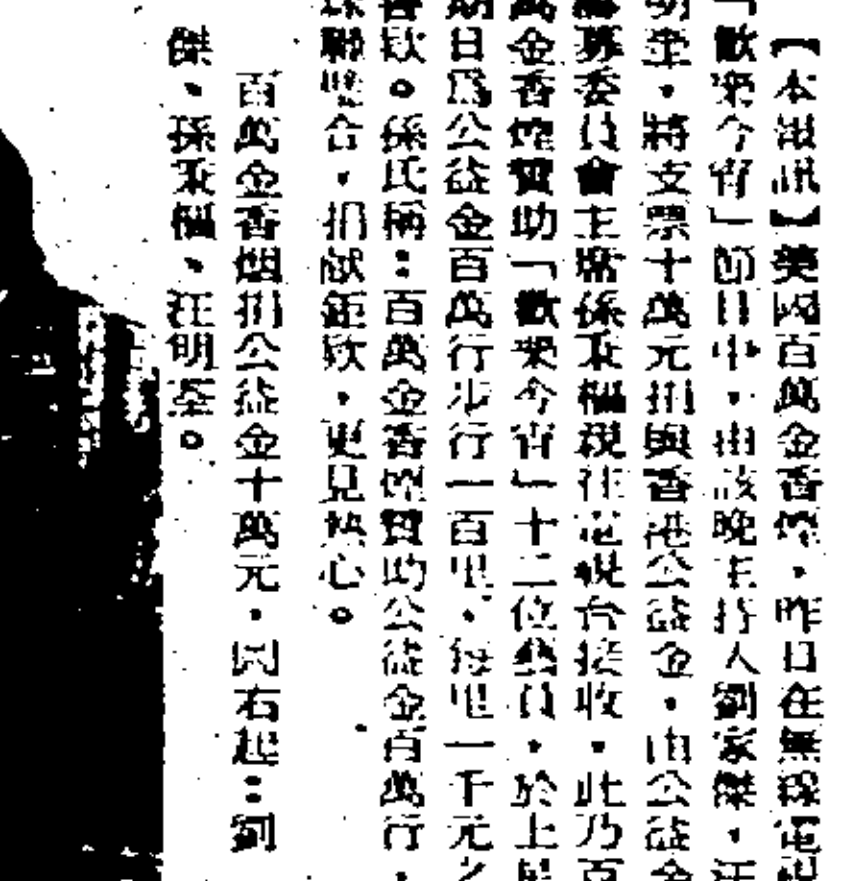 【本報訊】美國百萬金香煙，昨日在無綫電視
「歡樂今宵」節目中，由該晚主持人劉家傑，汪
明荃，將支票十萬元捐與香港公益金，由公益金
籌募委員會主席孫秉樞親往電視台接收，此乃百
萬金香煙贊助「歡樂今宵」十二位藝員，於上星
期日爲公益金百萬行步行一百里，每里一千元之
善欵。孫氏稱：百萬金香煙贊助公益金百萬行，
聯合，捐献鉅欵，更見熱心。
百萬金香烟捐公益金十萬元，圖右起：劉
傑、孫秉樞、汪明荃。